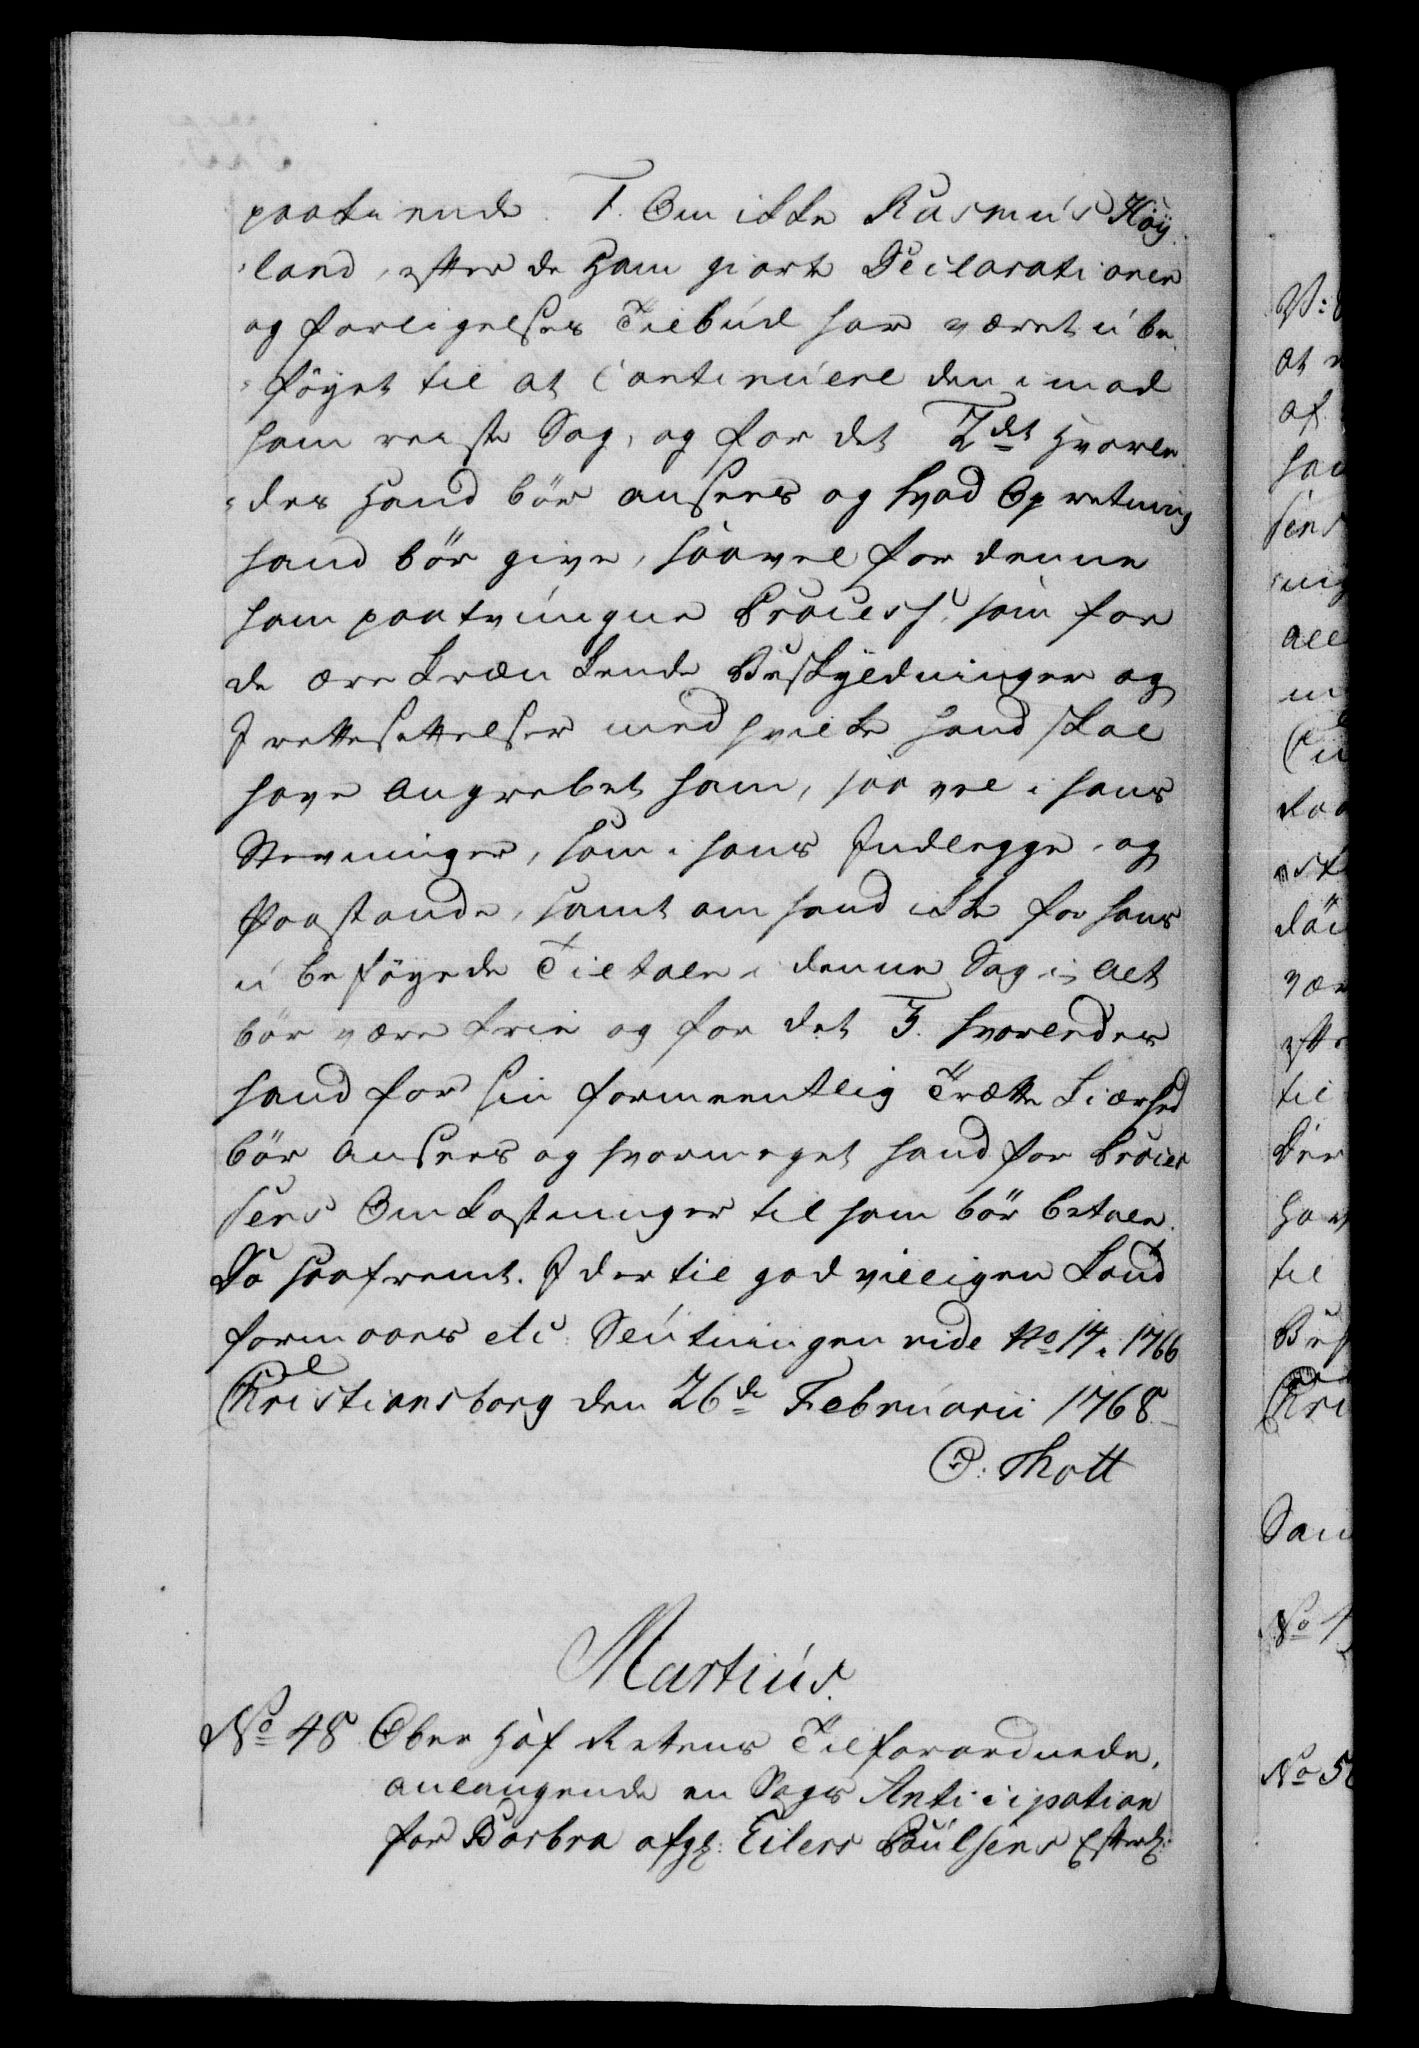 paakiende. 1. Om ikke Rasmus Höÿ
land, efter de ham giorte Declarationer
og forligelses Tilbud har været ube
föÿet til at Continuere den imod
ham reiste Sag, og for det 2det hvorle
des hand bör ansees og hvad Opretning
hand bör give, saavel for denne
ham paatvungne Process, som for
de ærekrænkende Beskÿldninger og
Irettesettelser med hvilke hand skal
have angrebet ham, saavel i hans
Stevninger, som i hans Indlegge og
Paastande, samt om hand ikke for hans
ubeföÿede Tiltale i denne Sag i alt
bör være frie og for det 3. hvorledes
hand for sin formeentlig Trættekiærhed
bör ansees og hvormeget hand for Proces
sens Omkostninger til ham bör betale.
Da saafremt I dertil godvilligen kand
formaaes etc: Slutningen vide No 14. 1766
Christiansborg den 26de Februarii 1768
O. Thott
Martius.
No 48 Ober Hof Rettens Tilforordnede,
anlangende en Sags Anticipation
for Barbra afg: Eilers Poulsens Efterl: